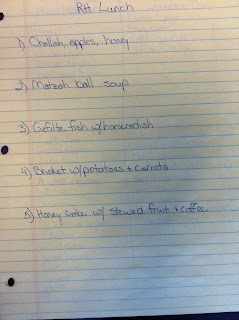 RH Lunch
1) Challah, apples, honey
2) Matzah ball soup
3) Gefilte fish w/horseradish
4) Brisket w/potatoes + carrots
5) Honey cake w/ stewed fruit + coffee